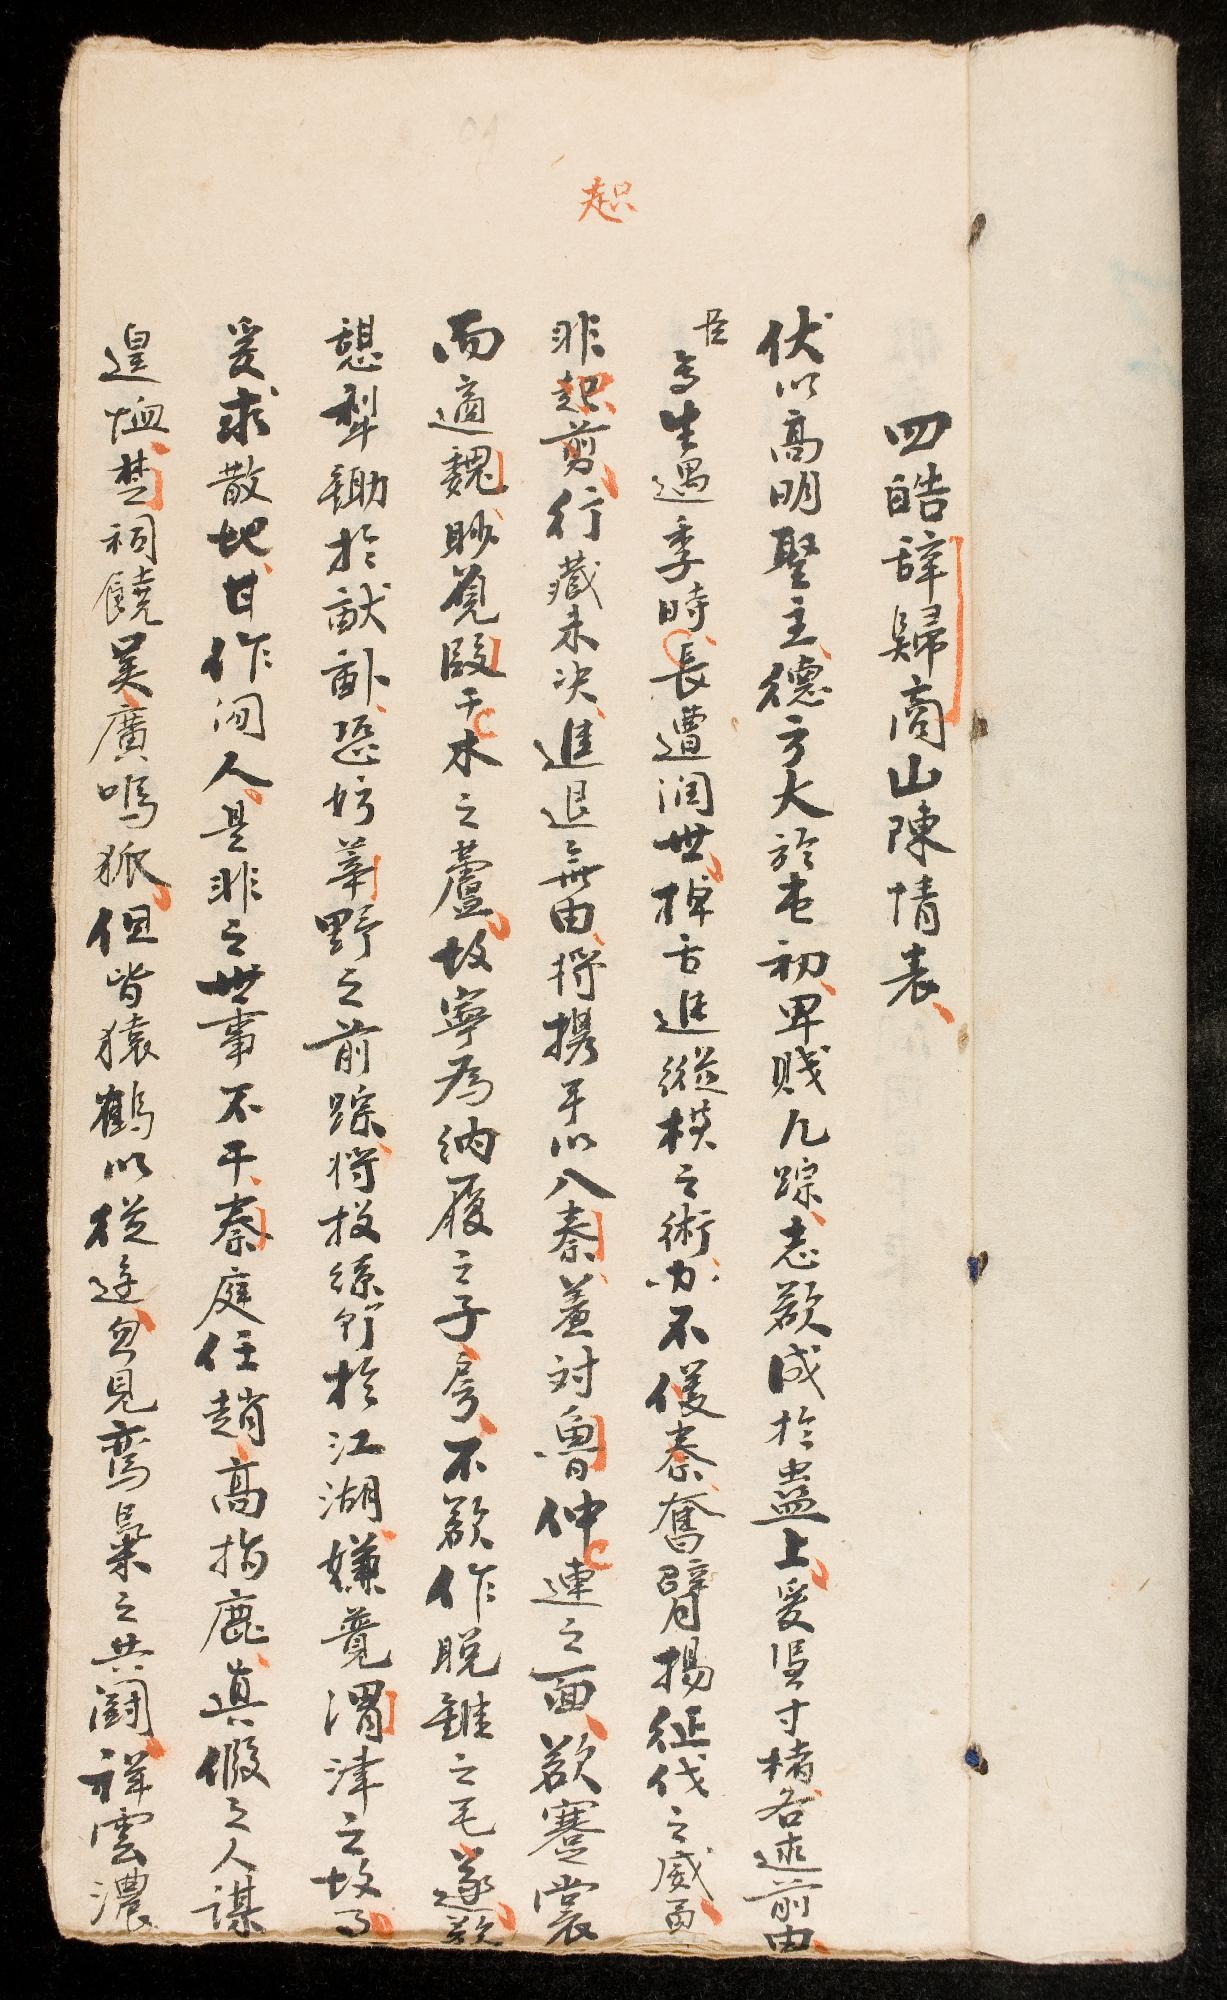 起
四皓辞歸商山陳情表
伏以高明聖主德方大於杢初卑賤凡踪志欲成於蛊上爰馮寸楮各述前由
臣等生遇季時長遭潤世掉舌進縱横之術力不優秦奮臂揚征伐之威勇
非起剪行藏未决進退無由将携手以入秦羞対魯仲連之面欲褰裳
而適魏眇覓段干木之蘆故寧為納履之子房不欲作脱錐之毛遂欲
憇犁鋤於畎畝恐妨莘野之前踪将投綸竹於江湖嫌覔渭津之故事
爰求散地甘作閒人是非之世事不干秦庭任趙高指鹿真假之人謀
遑恤楚祠饒吴廣鳴狐但皆猿鶴以從遊忽見鸞梟之共鬪祥雲濃